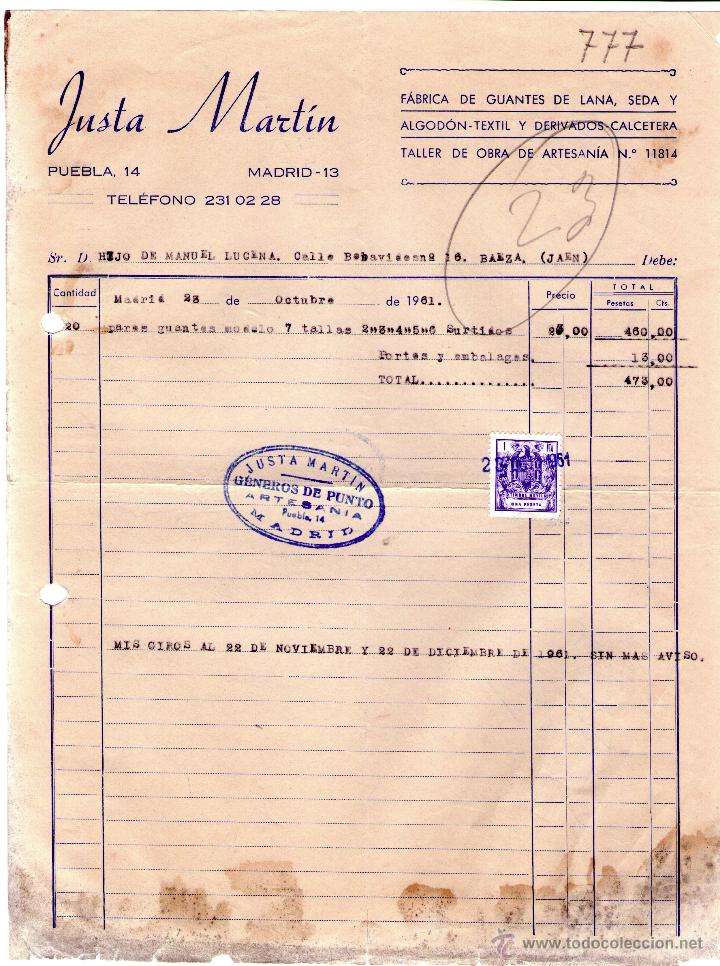 777
Justa Martín
PUEBLA, 14 MADRID-13
TELÉFONO 231 02 28
FÁBRICA DE GUANTES DE LANA, SEDA Y
ALGODÓN-TEXTIL Y DERIVADOS CALCETERA
TALLER DE OBRA DE ARTESANÍA N.º 11814
23
Sr. D. HIJO DE MANUEL LUCENA. Calle Benavidesnº 16. BAEZA. (JAEN) Debe:
Cantidad Madrid 23 de Octubre de 1961. Precio TOTAL
Pesetas Cts.
20 pares guantes modelo 7 tallas 2"3"4"5"6 Surtidos 23,00 460,00
Portes y embalages. 13,00
TOTAL.............. 473,00
1 Pta
1961
UNA PESETA
JUSTA MARTIN
GÉNEROS DE PUNTO
ARTESANIA
Puebla, 14
MADRID
MIS GIROS AL 22 DE NOVIEMBRE Y 22 DE DICIEMBRE DE 1961. SIN MAS AVISO.
www.todocoleccion.net